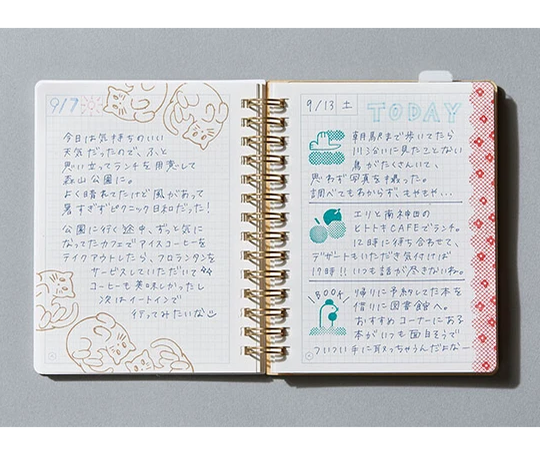 9/7
今日は気持ちのいい
天気だったので、ふと
思い立ってランチを用意して
森山公園に。
よく晴れてたけど風があって
暑すぎずピクニック日和だった！
公園に行く途中、ずっと気に
なってたカフェでアイスコーヒーを
テイクアウトしたら、フロランタンを
サービスしていただいて
コーヒーも美味しかったし
次はイートインで
行ってみたいな
9/13 土
TODAY
朝、駅まで歩いてたら
川沿いに見たことない
鳥がたくさんいて、
思わず写真を撮った。
調べてもわからず、もやもや…
エリと南神田の
ヒトトキCAFEでランチ。
12時に待ち合わせて、
デザートもいただき気付けば
17時!! いつも話が尽きないね。
BOOK
帰りに予約してた本を
借りに図書館へ。
おすすめコーナーにある
本がいつも面白そうで
ついつい手に取っちゃうんだよなー